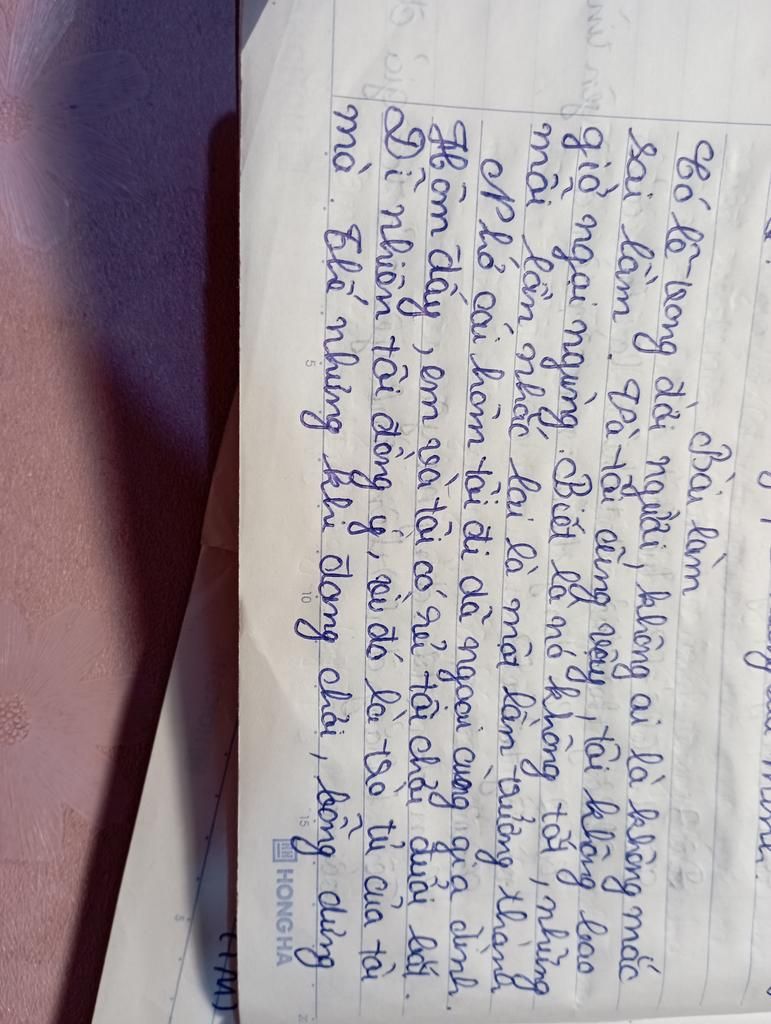 Bài làm
Có lẽ trong đời người, không ai là không mắc
sai lầm. Và tôi cũng vậy, tôi không bao
giờ ngại ngùng. Biết là nó không tốt, nhưng
mỗi lần nhắc lại là một lần trưởng thành
Nhớ cái hôm tôi đi dã ngoại cùng gia đình.
Hôm đấy, em và tôi có rủ tôi chơi đuổi bắt.
Dĩ nhiên tôi đồng ý, vì đó là trò tủ của tôi
mà. Thế nhưng khi đang chơi, bỗng dừng
5
10
15
HONG HA
5